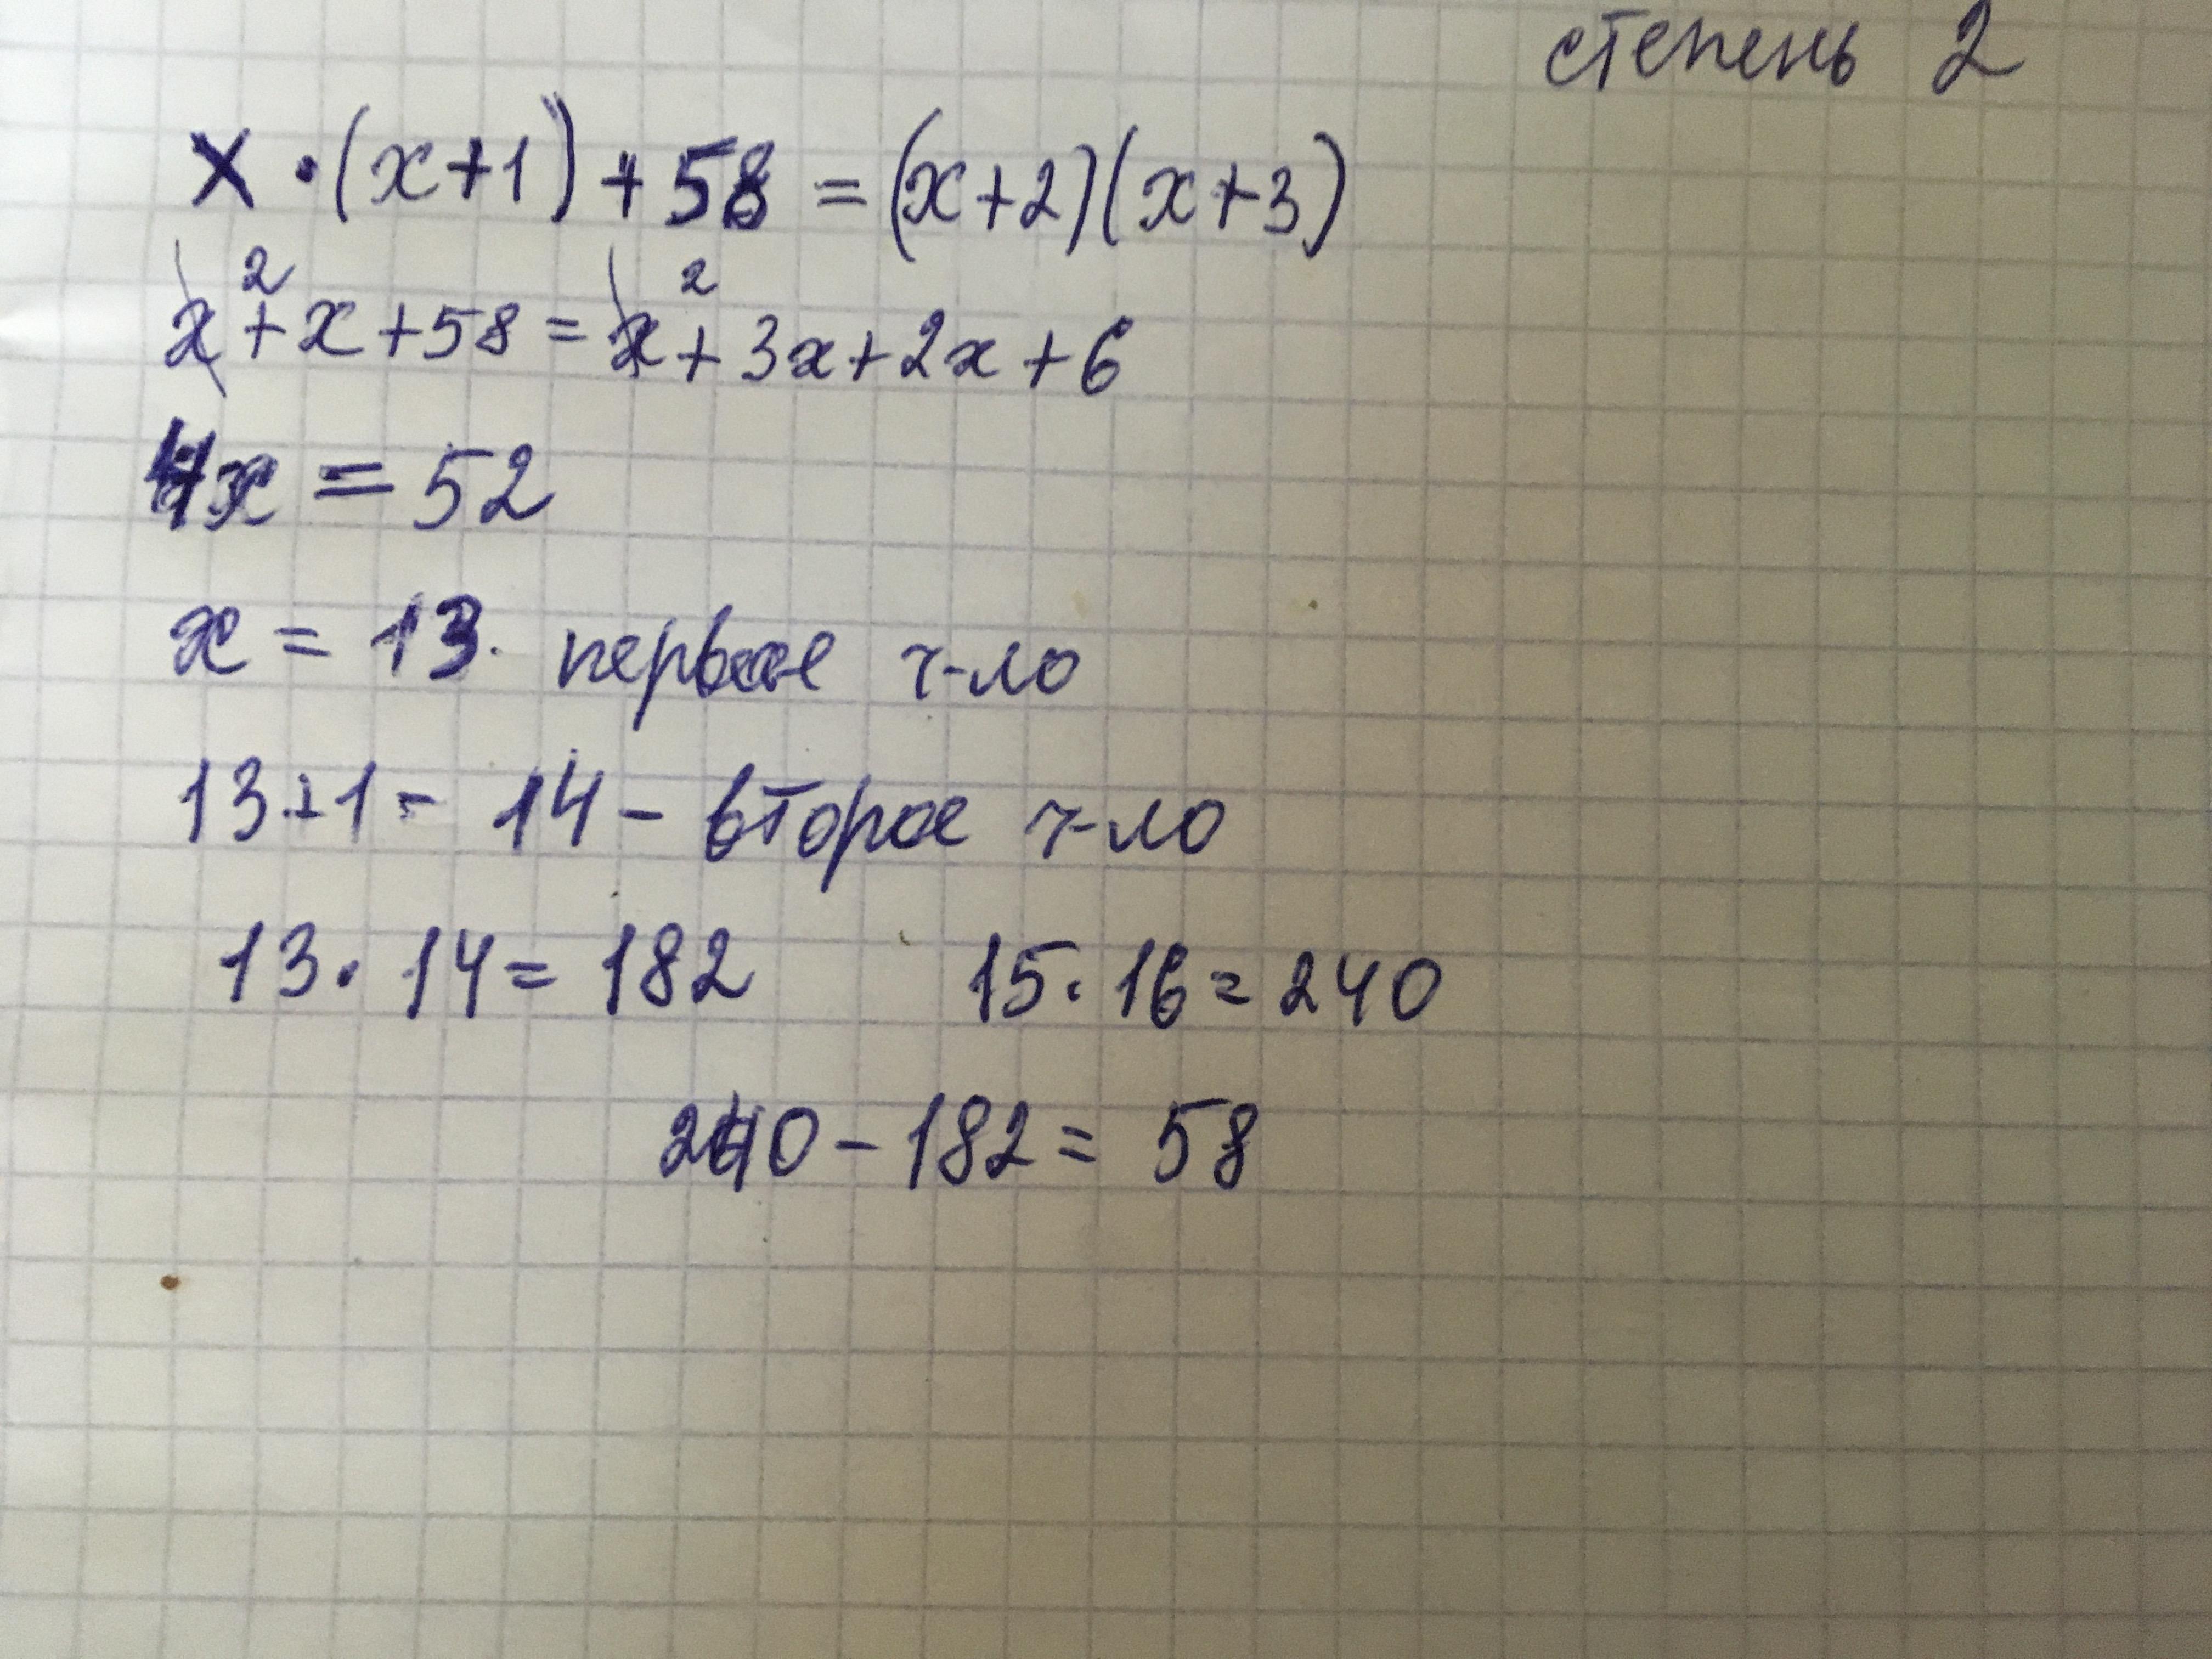 степень 2
x · (x+1) + 58 = (x+2)(x+3)
x² + x + 58 = x² + 3x + 2x + 6
4x = 52
x = 13. первое ч-ло
13+1 = 14 - второе ч-ло
13 · 14 = 182 15 · 16 = 240
240 - 182 = 58